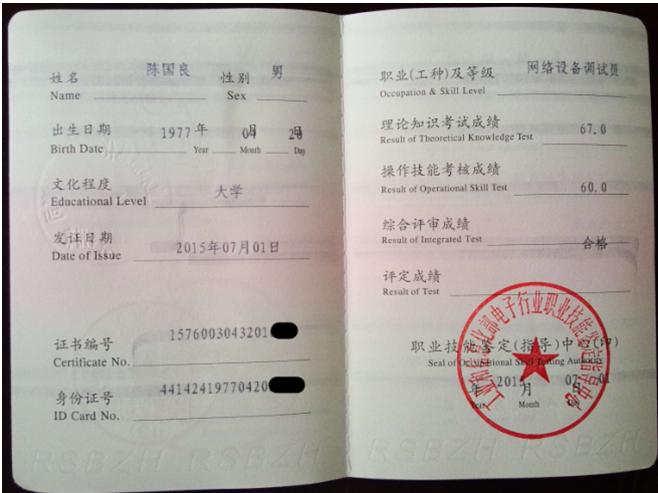 姓名 陈国良 性别 男
Name Sex
出生日期 1977 年 04 月 20 日
Birth Date Year Month Day
文化程度 大学
Educational Level
发证日期 2015年07月01日
Date of Issue
证书编号 1576003043201
Certificate No.
身份证号 44142419770420
ID Card No.
RSBZH RSBZH
职业(工种)及等级 网络设备调试员
Occupation & Skill Level
理论知识考试成绩 67.0
Result of Theoretical Knowledge Test
操作技能考核成绩 60.0
Result of Operational Skill Test
综合评审成绩 合格
Result of Integrated Test
评定成绩
Result of Test
职业技能鉴定(指导)中心(印)
Seal of Occupational Skill Testing Authority
年 月 07 01
Year Month
RSBZH RSBZH